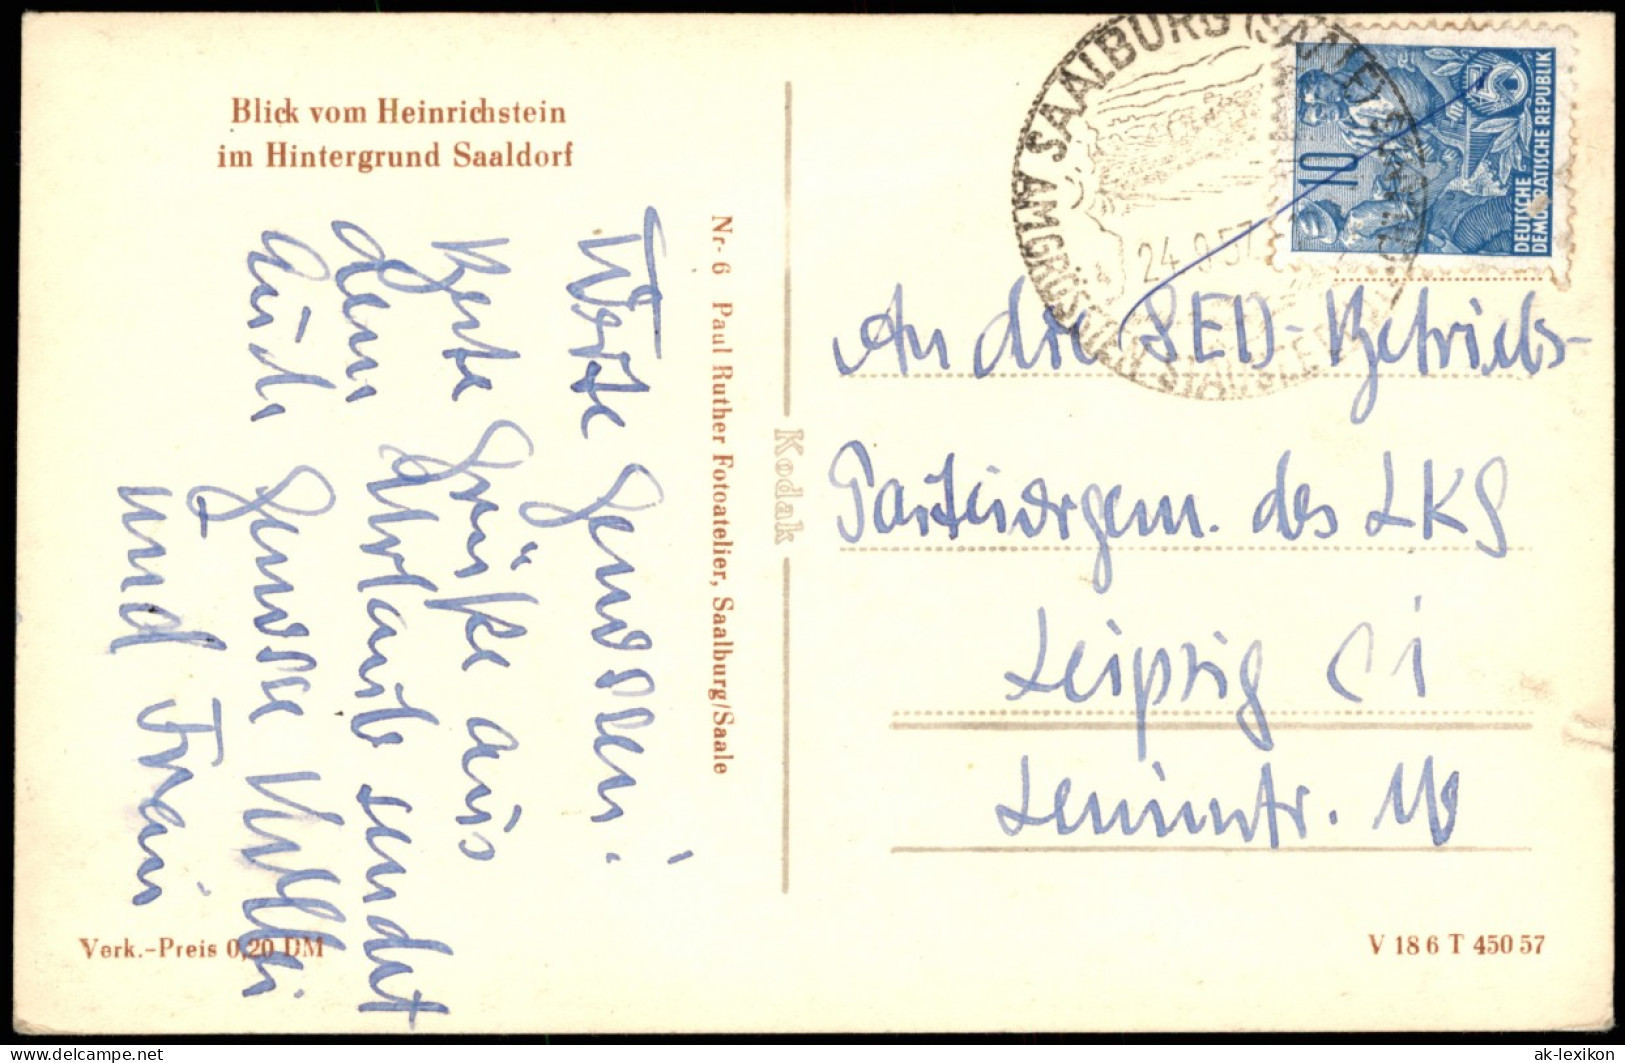 Blick vom Heinrichstein
im Hintergrund Saaldorf
Werte Genossen!
Beste Grüße aus
dem Urlaub sendet
Euch Genosse
und Frau
Nr. 6 Paul Ruther Fotoatelier, Saalburg/Saale
Kodak
SAALBURG (SAALE)
AM GRÖSSTEN
24.9.57
10
5
DEUTSCHE
DEMOKRATISCHE REPUBLIK
An die SED-Betriebs-
Parteiorgan. des LKG
Leipzig C 1
Leninstr. 16
Verk.-Preis 0,20 DM
V 18 6 T 450 57
ak-lexikon
www.delcampe.net